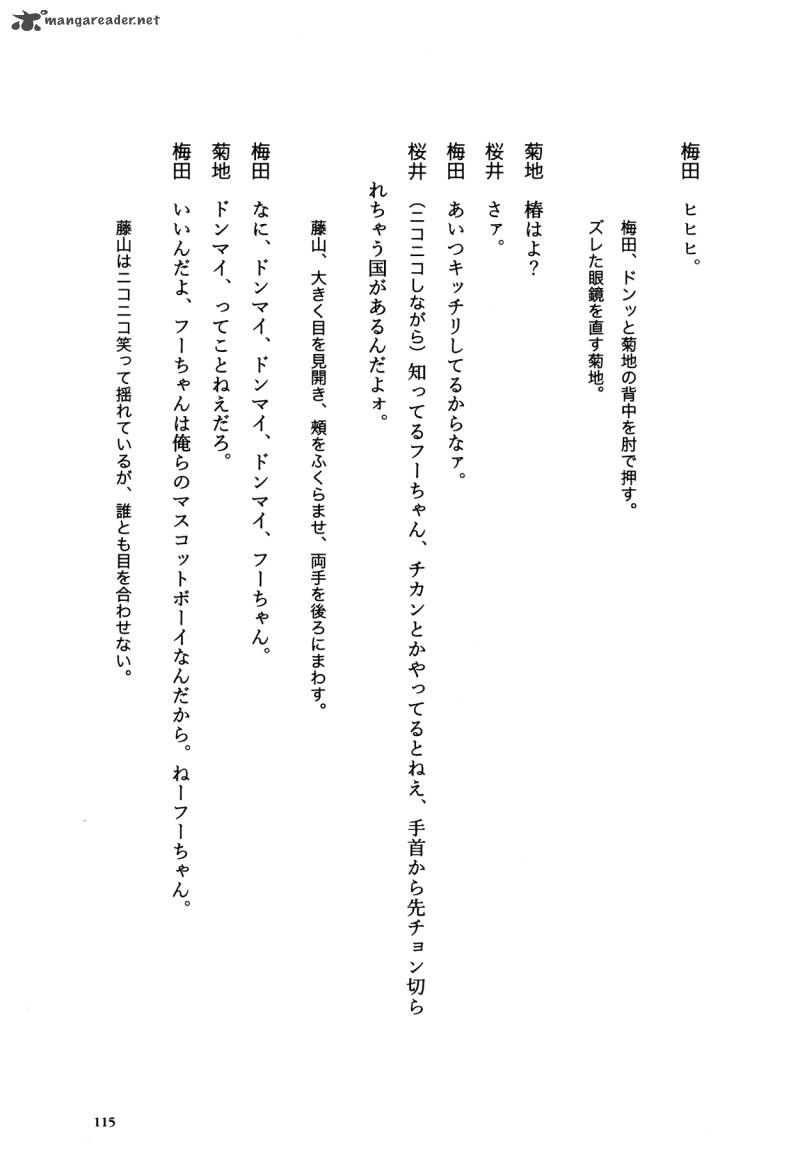 mangareader.net
梅田　ヒヒヒ。
梅田、ドンッと菊地の背中を肘で押す。
ズレた眼鏡を直す菊地。
菊地　椿はよ？
桜井　さァ。
梅田　あいつキッチリしてるからなァ。
桜井　（ニコニコしながら）知ってるフーちゃん、チカンとかやってるとねえ、手首から先チョン切ら
れちゃう国があるんだよォ。
藤山、大きく目を見開き、頬をふくらませ、両手を後ろにまわす。
梅田　なに、ドンマイ、ドンマイ、ドンマイ、フーちゃん。
菊地　ドンマイ、ってことねえだろ。
梅田　いいんだよ、フーちゃんは俺らのマスコットボーイなんだから。ねーフーちゃん。
藤山はニコニコ笑って揺れているが、誰とも目を合わせない。
115